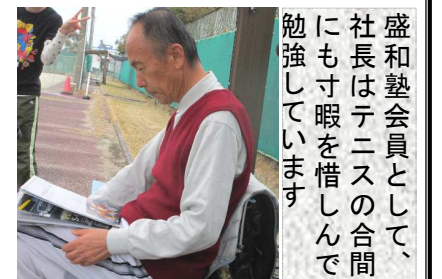 盛和塾会員として、
社長はテニスの合間
にも寸暇を惜しんで
勉強しています